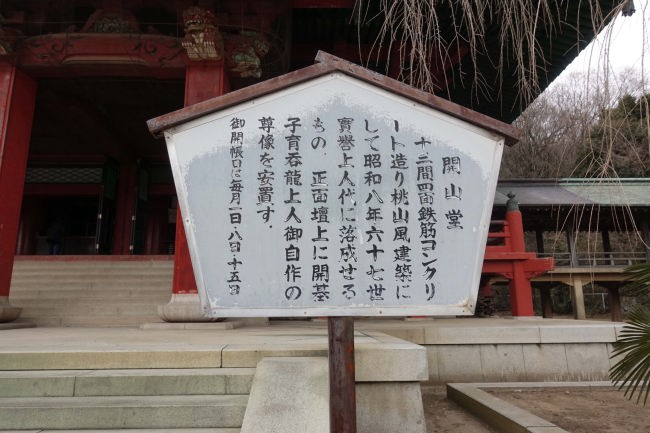 開山堂
十三間四面鉄筋コンクリ
ート造り桃山風建築に
して昭和八年六十七世
實誉上人代に落成せる
もの．正面壇上に開基
子育呑龍上人御自作の
尊像を安置す．
御開帳日は毎月一日・八日・十五日